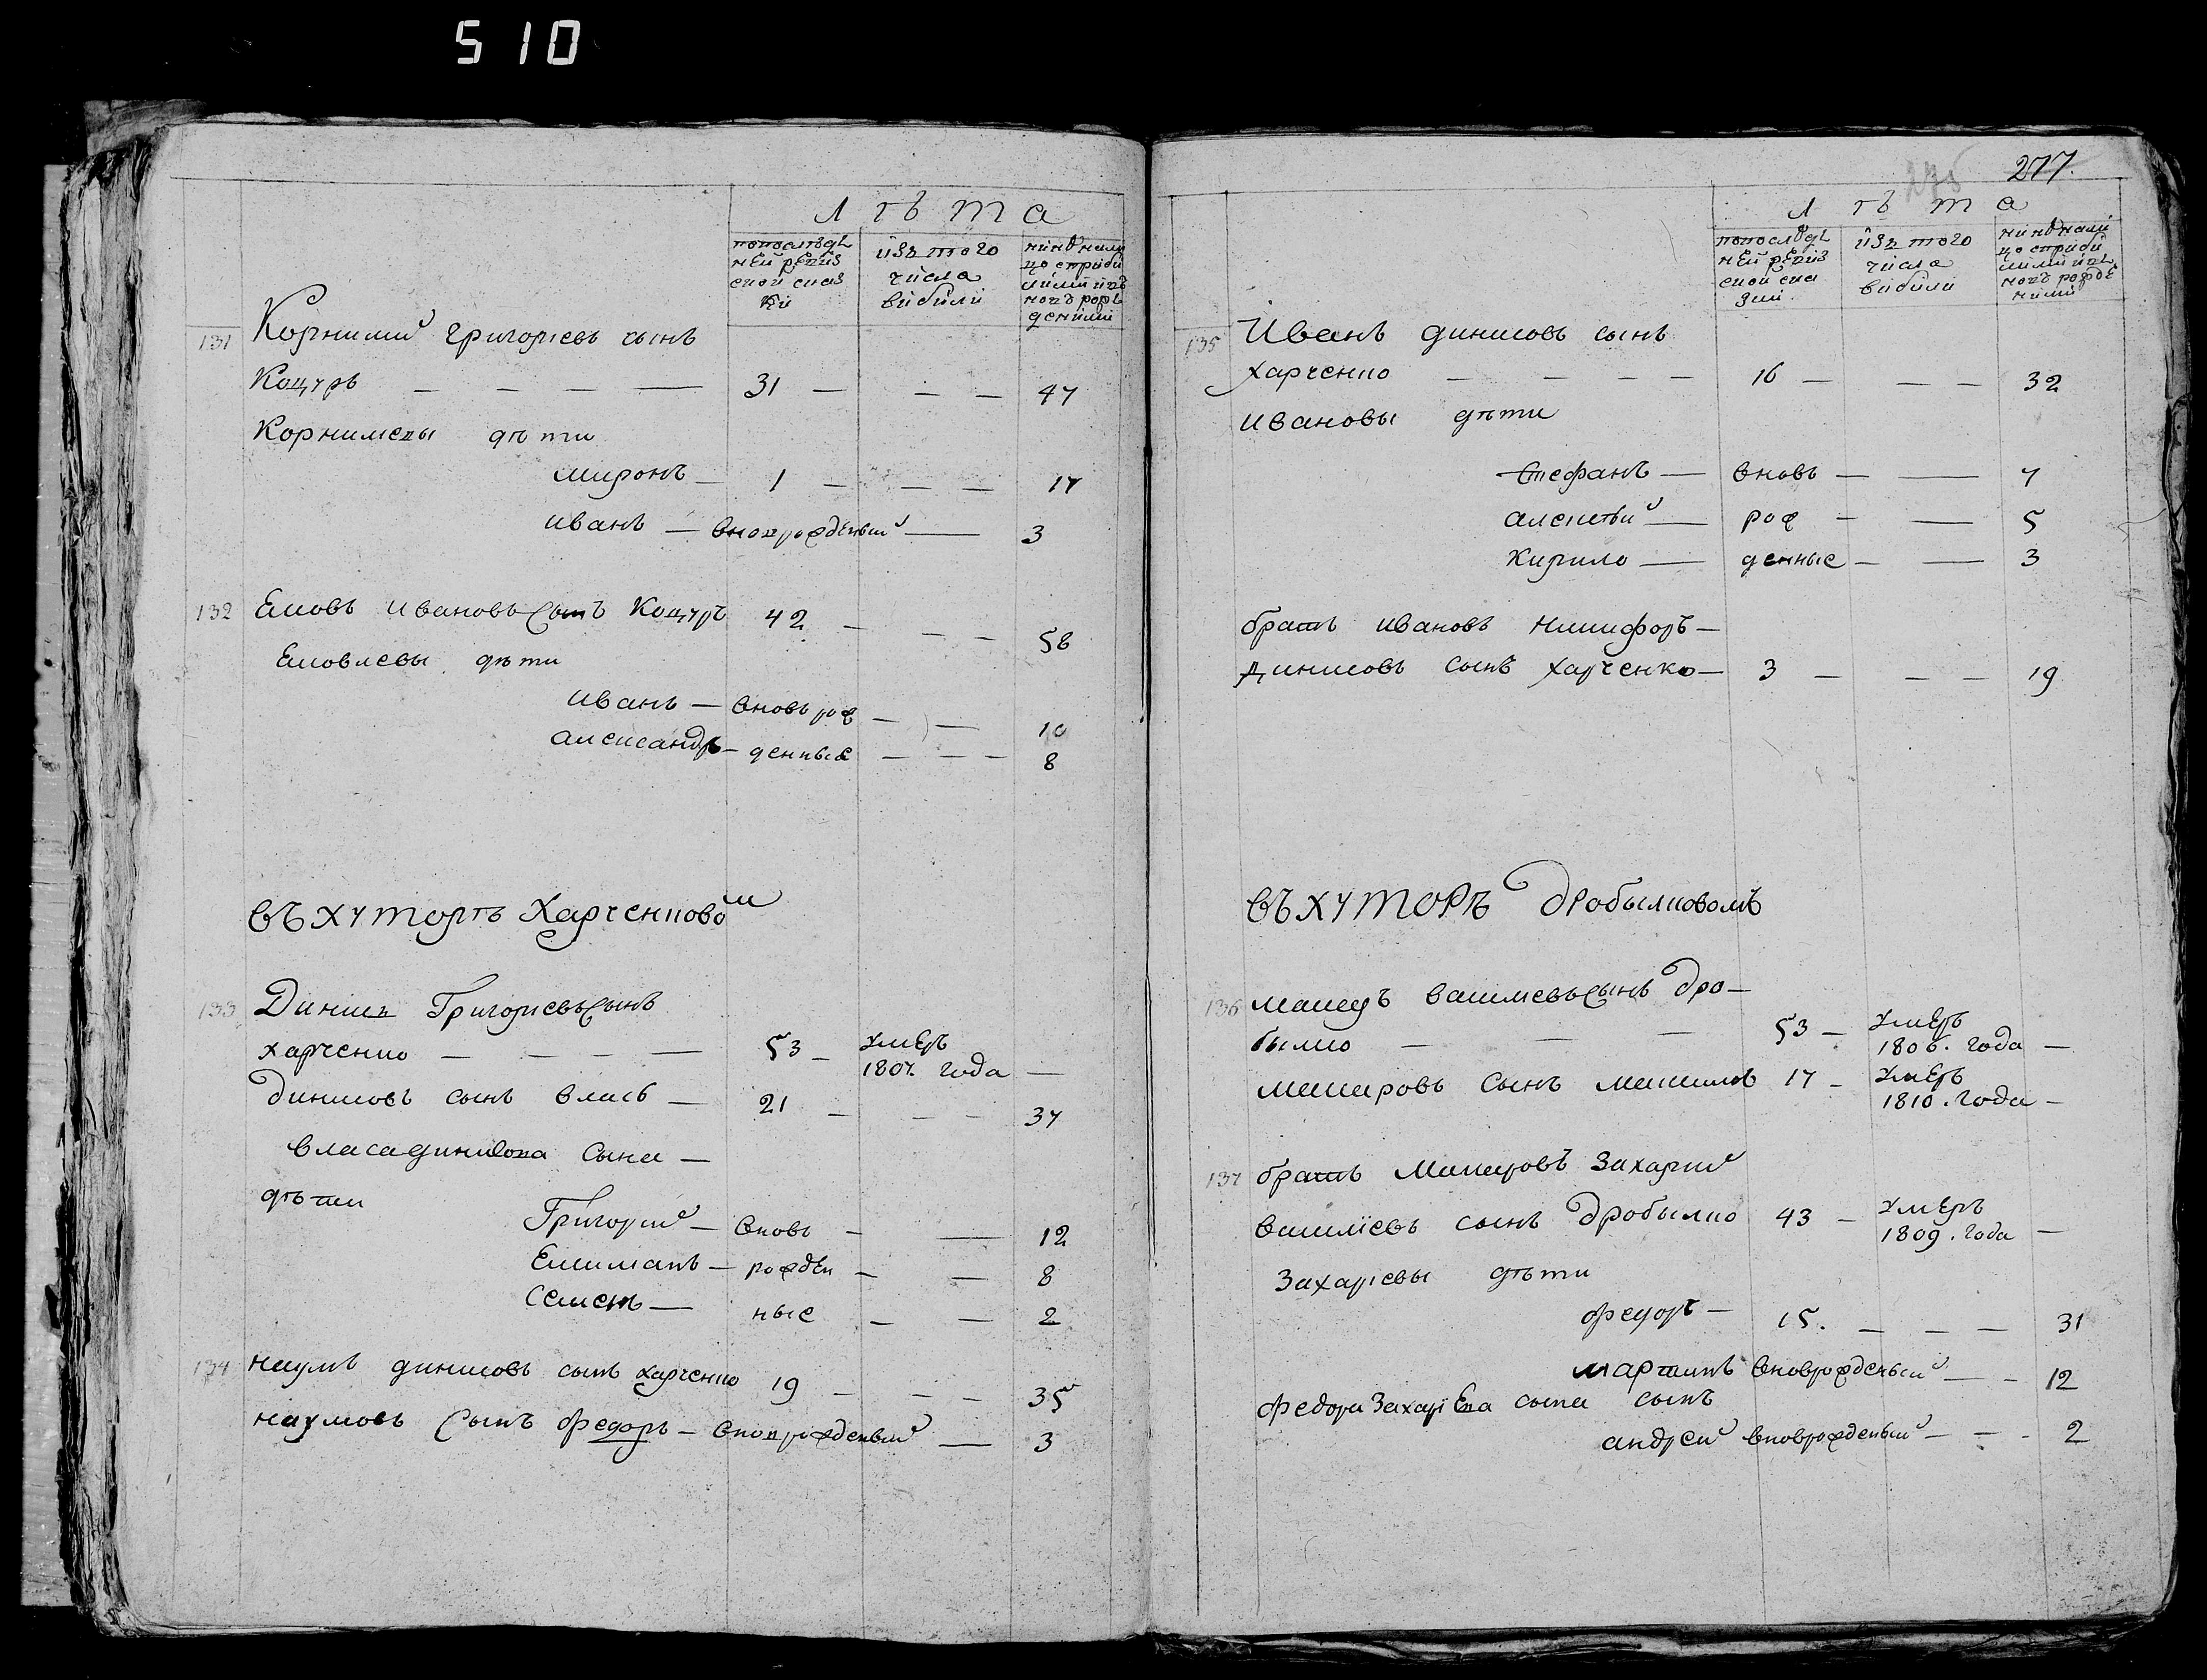 510
Л ѣ т а
попослѣд
ней ревиз
ской сказ
ки
изъ того
числа
вибили
нинѣ нали
цо сприби
лими ивъ
новъ рож
деними
131 Корнилий григорiевъ сынъ
Коцуръ — — — — 31 — — — 47
Корнилиевы дѣти
миронъ — 1 — — — 17
иванъ — вноврожденый — 3
132 Еиовъ ивановъ сынъ Коцуръ 42 — — — 58
Еиовлевы дѣти
иванъ — вновь рож — — 10
александръ — денные — — — 8
въ хуторѣ Харченковом
133 Динисъ Григорiевъ сынъ
харченко — — — — 53 — умеръ
1807. года —
Динисовъ сынъ власъ — 21 — — — 37
власа динисова сына —
дѣти
Григорий — вновь — — 12
Емилиянъ — рожден — — 8
Семенъ — ные — — 2
134 наумъ динисовъ сынъ харченко 19 — — — 35
наумовъ сынъ федоръ — вноврожденый — 3
277.
Л ѣ т а
попослѣд
ней ревиз
ской ска
зки.
изъ того
числа
вибили
нинѣ нали
цо с приби
лими ивъ
новъ рожде
ними
135 Иванъ динисовъ сынъ
харченко — — — — 16 — — — 32
ивановы дѣти
Стефанъ — вновь — — 7
алексѣй — рож — — 5
Кирило — денные — — 3
братъ ивановъ никифоръ —
динисовъ сынъ харченко — 3 — — — 19
въ хуторѣ Дробылковомъ
136 мацеръ василиевъ сынъ Дро—
былко — — — 53 — умеръ
1806. года —
мацеровъ сынъ 17 — умеръ
1810. года —
137 братъ мацеровъ Захарий
василiевъ сынъ Дробылко 43 — умеръ
1809. года —
Захарiевы дѣти
федоръ — 15. — — — 31
мартинъ вноврожденый — — 12
федора Захарiева сына сынъ
андрей вноврожденый — — - 2